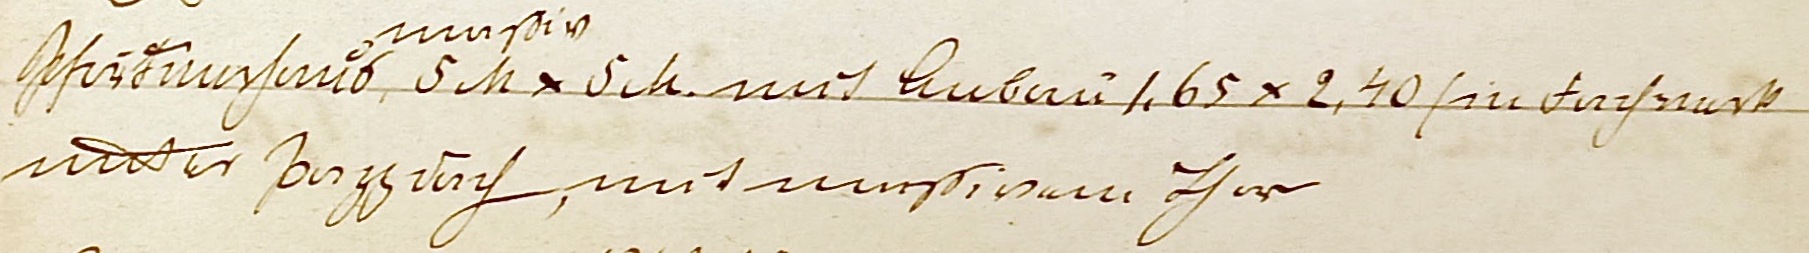 massiv
Pförtnerhaus, 5 M x 5 M. mit Anbau 1,65 x 2,40 (in Fachwerk
unter Pappdach, mit massivem Thor